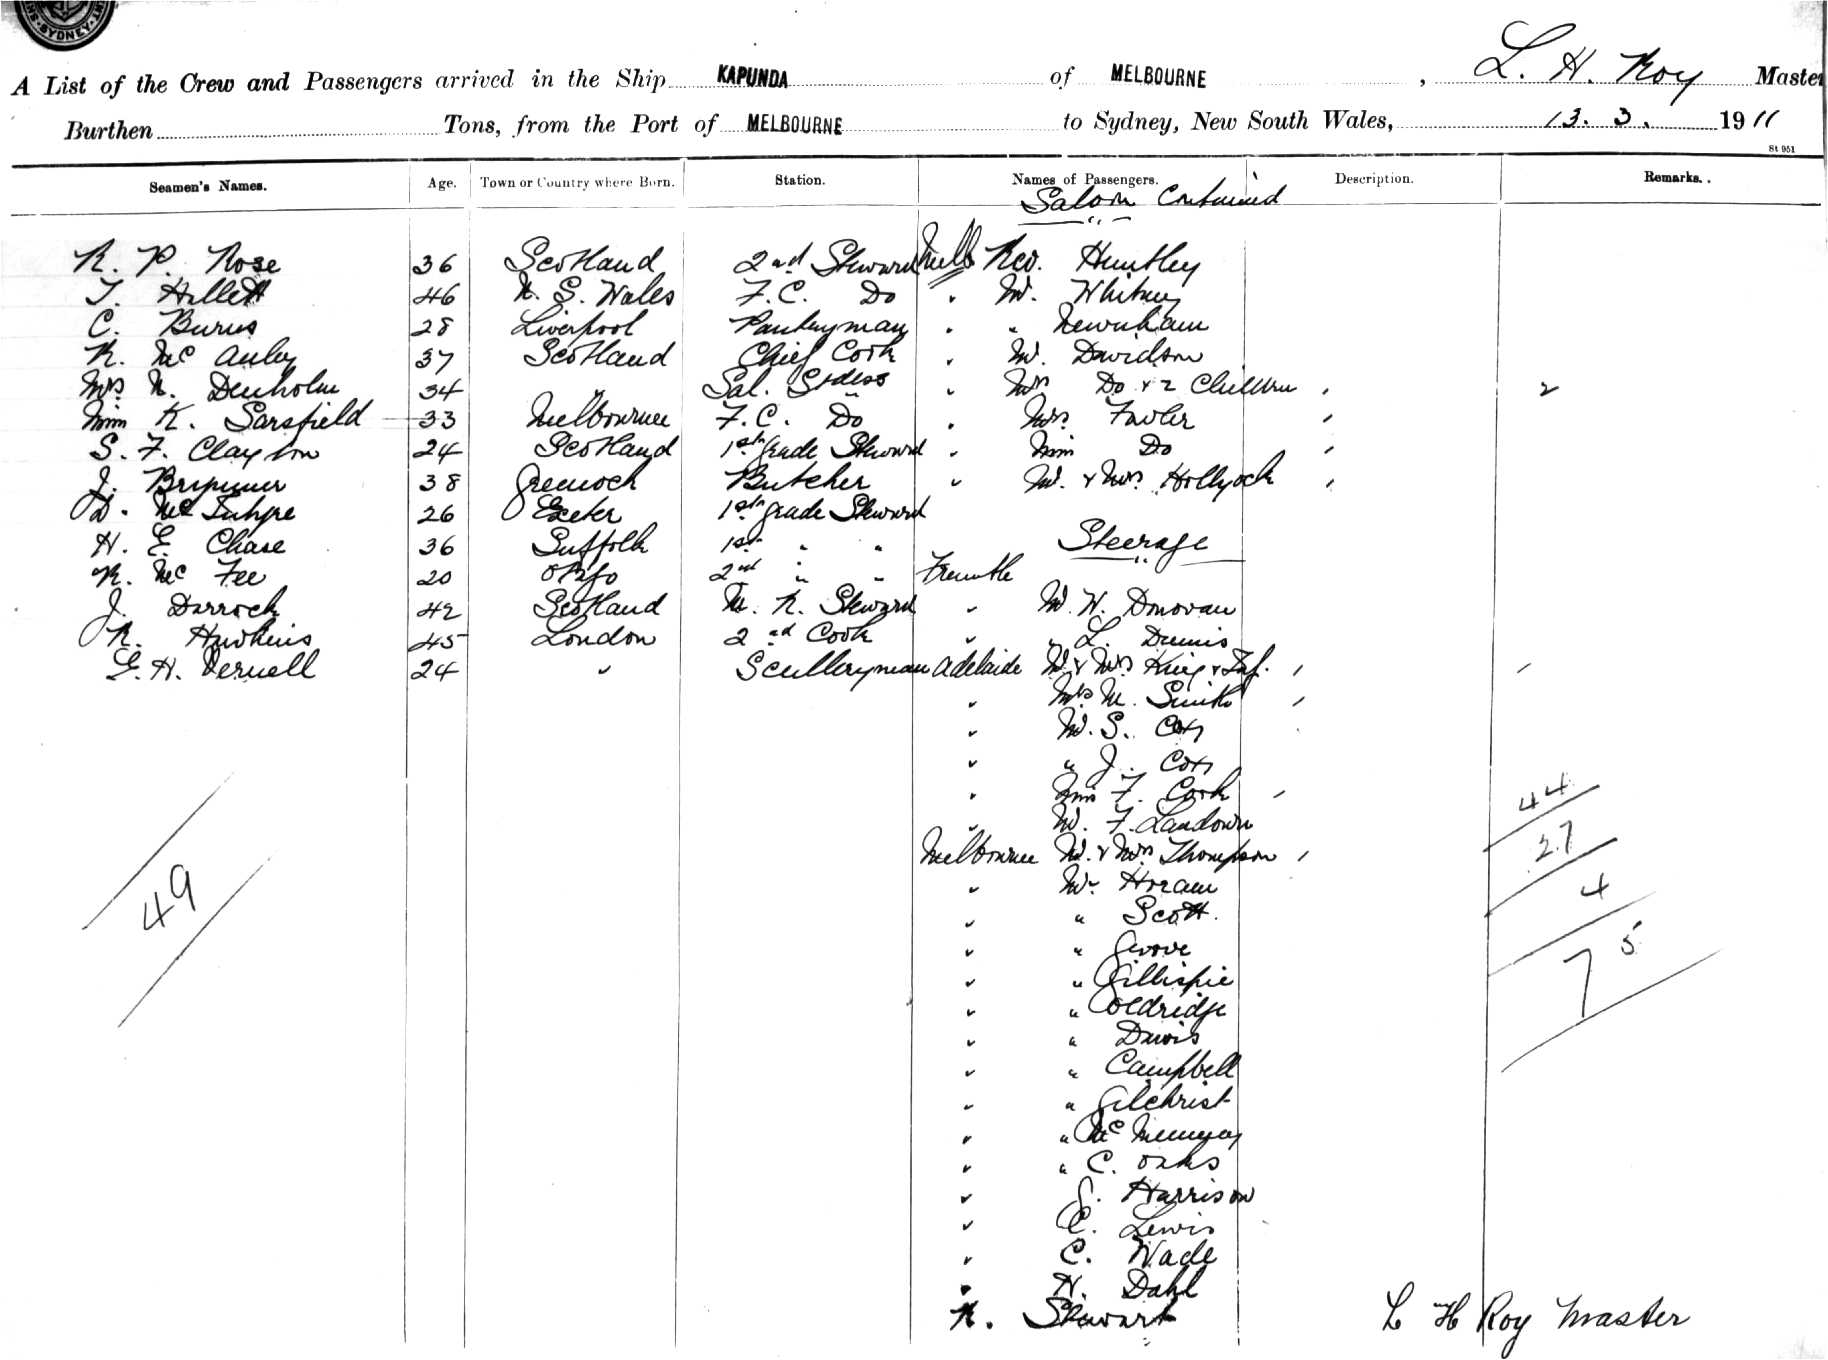 SYDNEY
A List of the Crew and Passengers arrived in the Ship KAPUNDA of MELBOURNE, L. H. Roy Master
Burthen Tons, from the Port of MELBOURNE to Sydney, New South Wales, 13. 3. 1911
St 951
Seamen's Names. Age. Town or Country where Born. Station. Names of Passengers. Description. Remarks.
Saloon Continued
R. P. Rose 36 Scotland 2nd Steward Melb Rev. Huntley
T. Hillett 46 N. S. Wales F. C. Do " Mr. Whitney
C. Burns 28 Liverpool Pantryman " " Newnham
R. Mc Auley 37 Scotland Chief Cook " Mr. Davidson
Mrs N. Denholm 34 " Sal. Stdess " Mrs Do & 2 Children 2
Miss K. Sarsfield 33 Melbourne F. C. Do " Mrs. Fowler
S. F. Clayton 24 Scotland 1st grade Steward " Miss Do
J. 38 Greenock Butcher " Mr. & Mrs. Hollyock
D. Mc 26 Exeter 1st grade Steward
H. E. Chase 36 Suffolk 1st " " Steerage
R. Mc Fee 20 2nd " " Fremtle
J. Darroch 42 Scotland M. R. Steward " Mr. W. Donovan
R. Hawkins 45 London 2nd Cook " " L. Dennis
E. H. Vernell 24 " Sculleryman Adelaide Mr & Mrs King & Inf.
" Mrs M. Smith
" Mr. S. Cox
" " J. Cox
" Miss F. Cook
" Mr. F. Landown
Melbourne Mr. & Mrs Thompson
" Mr. Horam
" " Scott.
" " Grove
" " Gillispie
" " Oldridge
" " Davis
" " Campbell
" " Gilchrist
" " Mc
" " C. Oaks
" J. Harrison
" C. Lewis
" C. Wade
" H. Dahl
R. Stewart
49
44
27
4
75
L H Roy Master